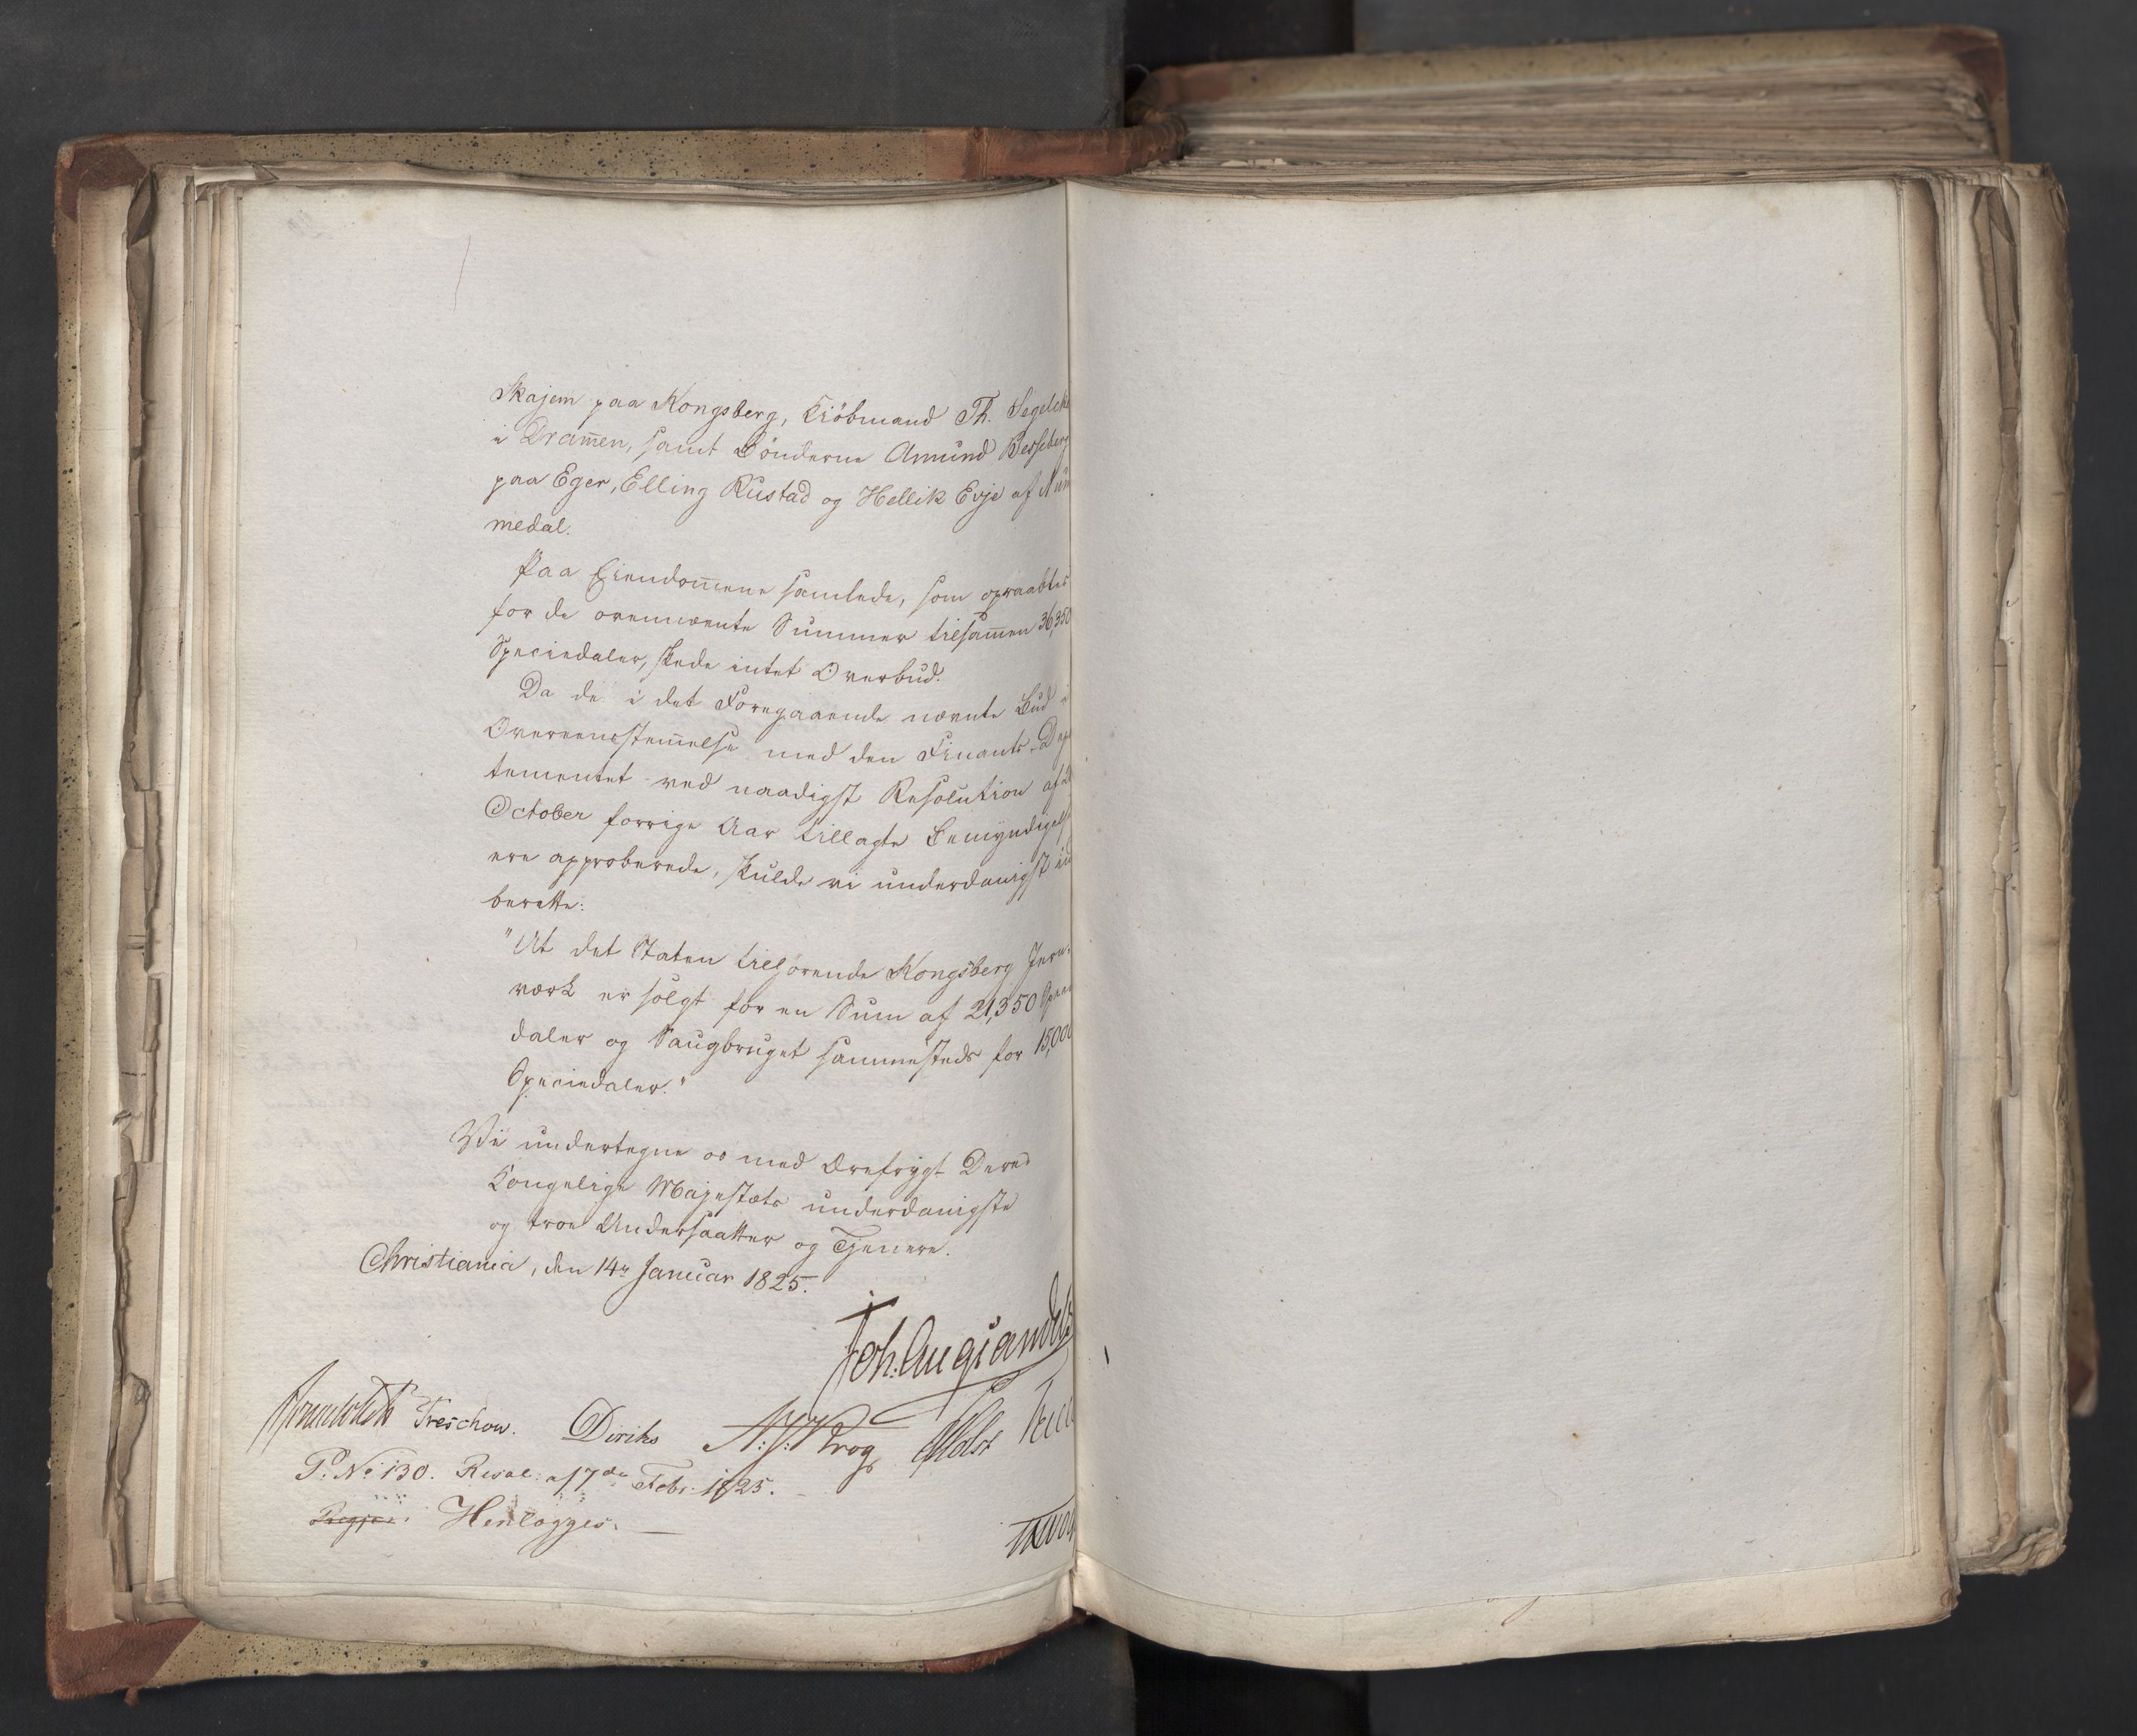 Skajem paa Kongsberg, Kiöbmand Th. Segelcke
i Dram̄en, samt Bönderne Amund Besseberg
paa Eger, Elling Rustad og Hellik Evje af Num
medal.
Paa Eiendom̄ene samlede, som opraabtes
for de ovennævnte Summer tilsam̄en 36,350
Speciedaler, skede intet Overbud.
Da de i det Foregaaende nævnte Bud i
Overeensstem̄else med den Finants-Depar
tementet ved naadigst Resolution af
October forrige Aar tillagte Bemyndigelse
ere approberede, skulde vi underdanigst ind
berette:
"At det Staten tilhørende Kongsberg Jern-
værk er solgt for en Sum af 21,350 Specie
daler og Saugbruget sammesteds for 15,000
Speciedaler."
Vi undertegne os med Ærefrygt Deres
Kongelige Majestæts underdanigste
og troe Undersaatter og Tjenere.
Christiania, den 14de Januar 1825.
Joh. Aug. Sandels
Treschow. Diriks A: J: Krog Holst
P. No 130. Resol: af 7de Febr. 1825.
Henlægges.